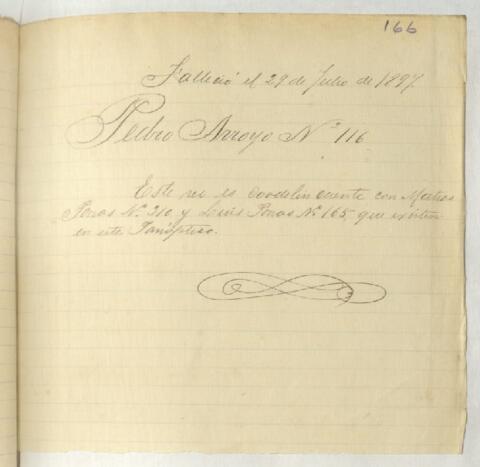 166
Falleció el 29 de Julio de 1897.
Pedro Arroyo Nº 116
Este reo es codelincuente con Matias
Porras Nº 210 y Luis Porras Nº 165, que existen
en este Panóptico.